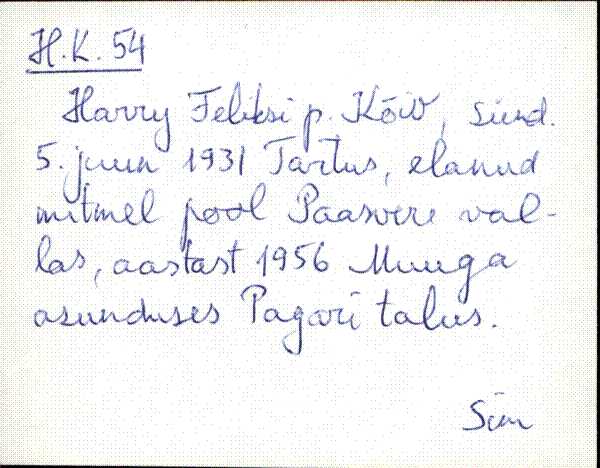 H.K. 54
Harry Feliksi p. Kõiv, sünd.
5. juun 1931 Tartus, elanud
mitmel pool Paasvere val-
las, aastast 1956 Muuga
asunduses Pagari talus.
Sim